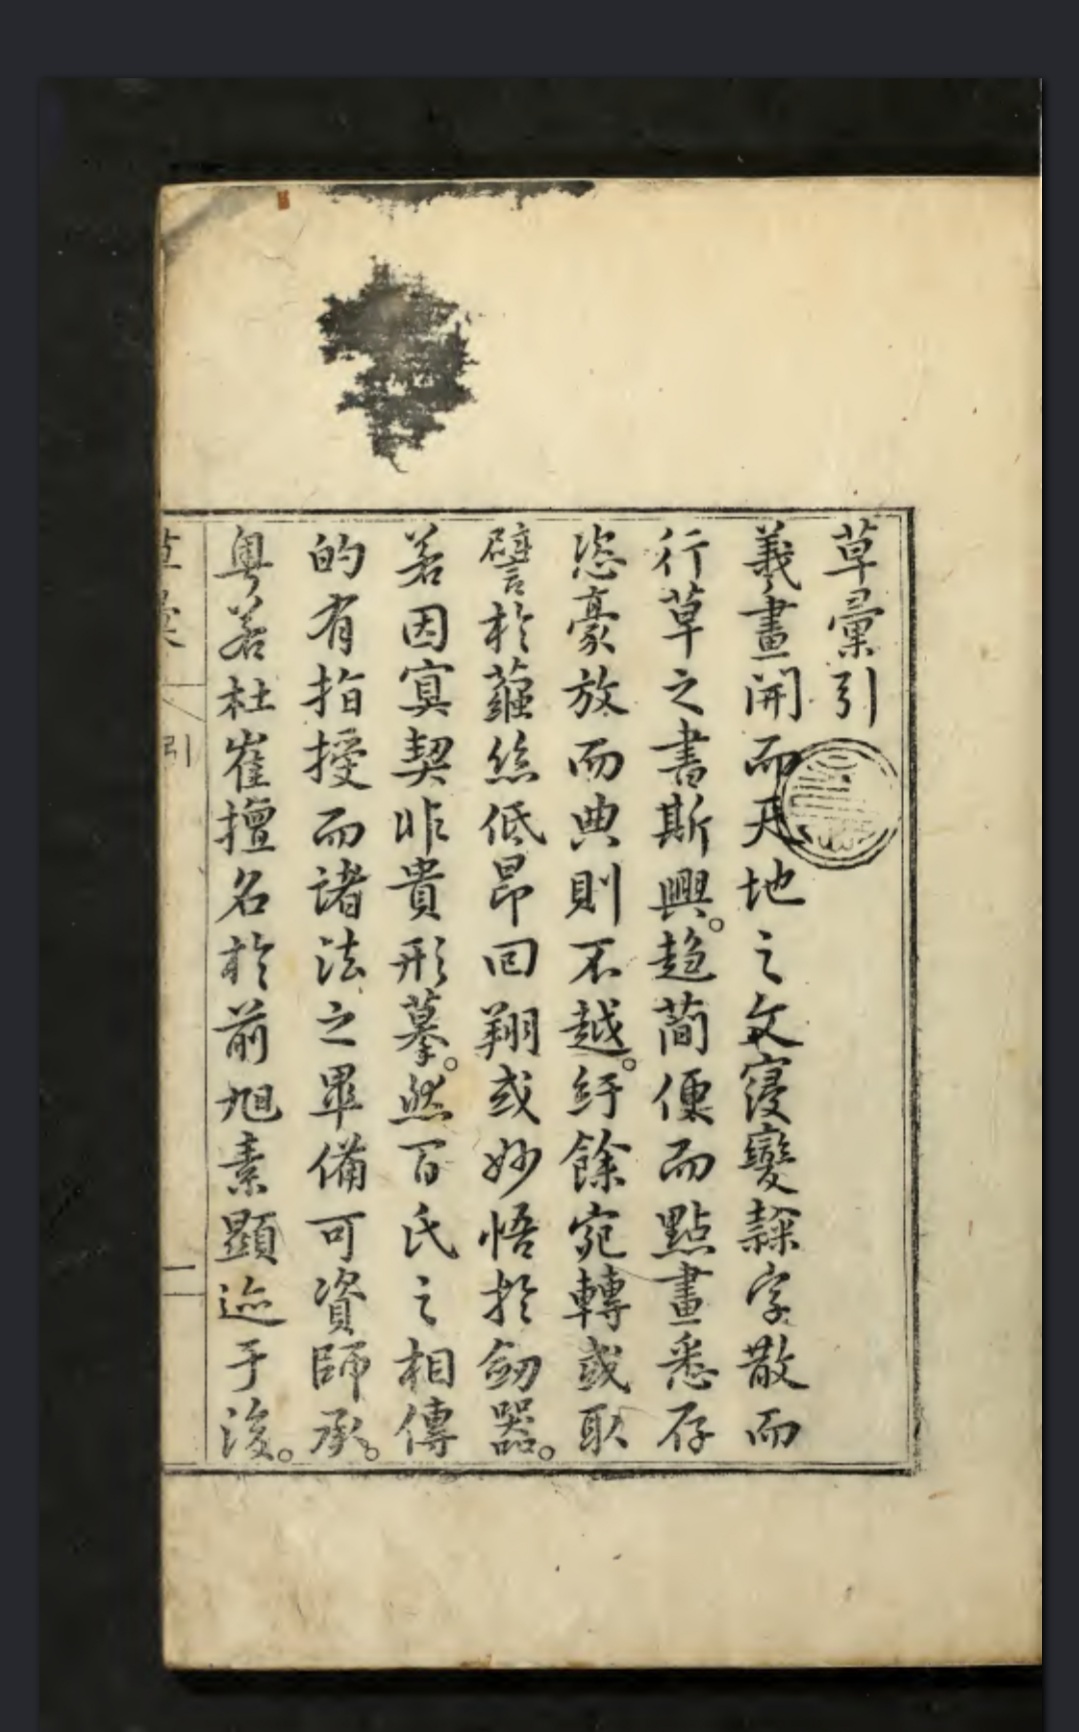 草彙引
羲畫開而天地之文寖變隸字散而
行草之書斯興。趨簡便而點畫悉存
恣豪放而典則不越。紆餘宛轉或取
譬於繭絲低昂回翔或妙悟於劒器。
若因冥契非貴形摹。然百氏之相傳
的有指授而諸法之畢備可資師承。
粤若杜崔擅名於前旭素顯迹于後。
草彙 引 一